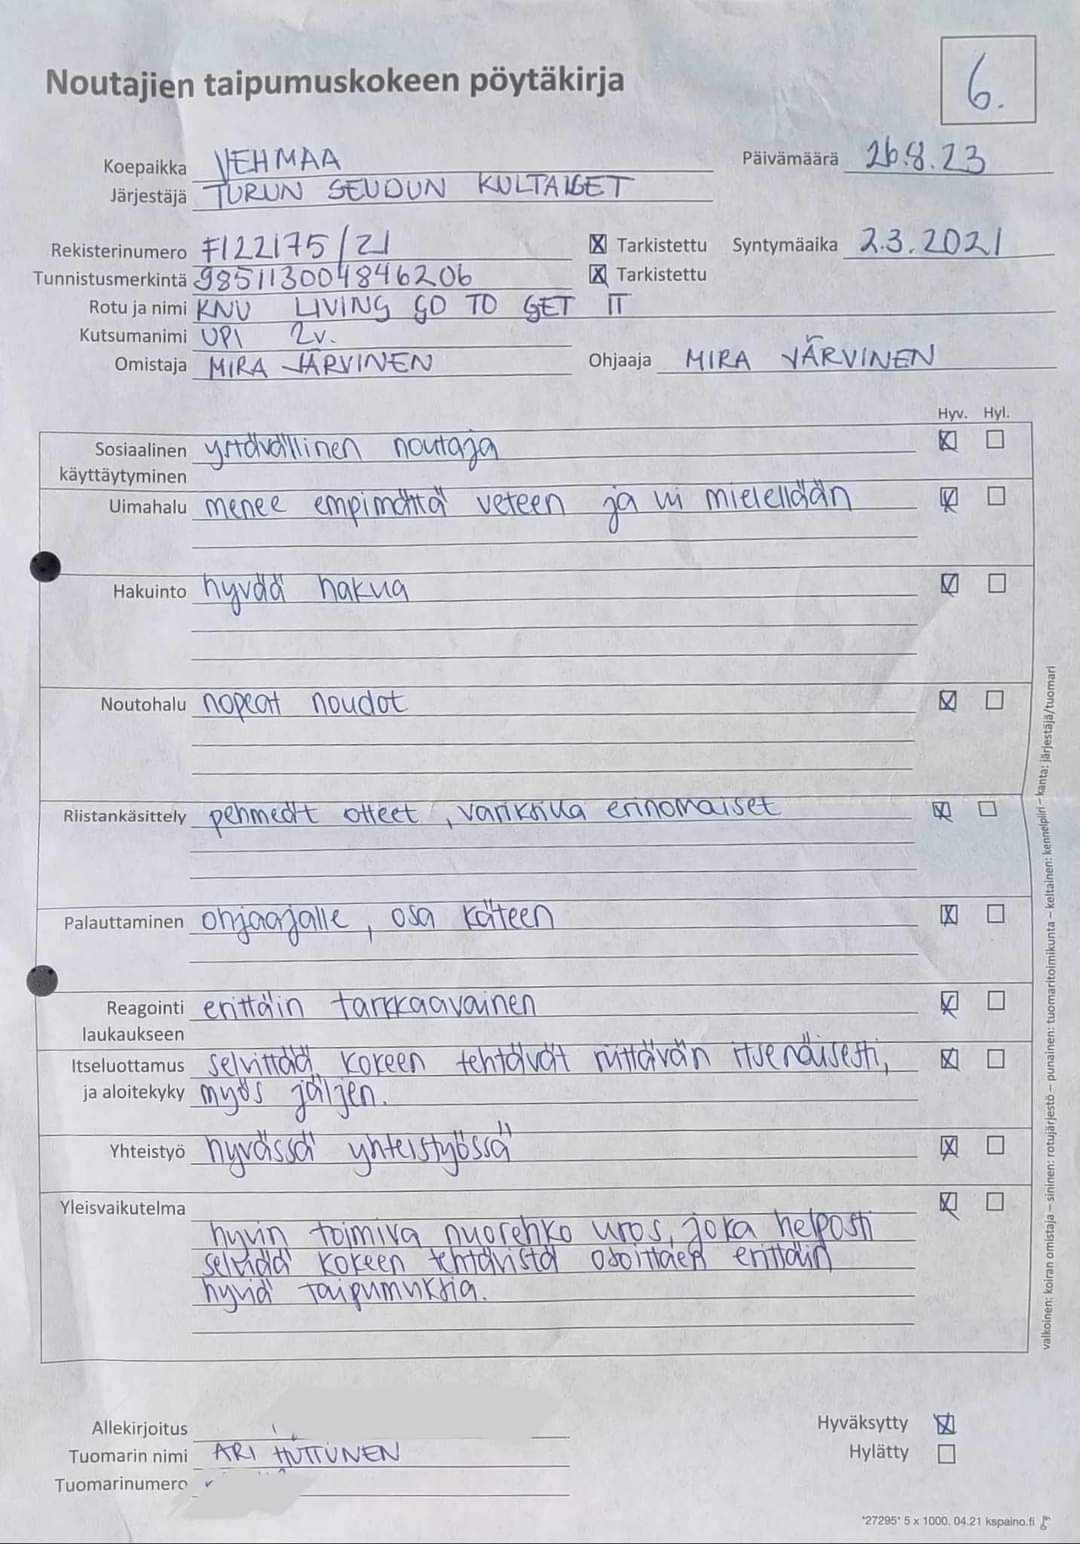 Noutajien taipumuskokeen pöytäkirja
6.
Koepaikka VEHMAA Päivämäärä 26.8.23
Järjestäjä TURUN SEUDUN KULTAISET
Rekisterinumero FI22175/21 Tarkistettu Syntymäaika 2.3.2021
Tunnistusmerkintä 985113004846206 Tarkistettu
Rotu ja nimi KNU LIVING GO TO GET IT
Kutsumanimi UPI 2v.
Omistaja MIRA JÄRVINEN Ohjaaja MIRA JÄRVINEN
Hyv. Hyl.
Sosiaalinen ystävällinen noutaja
käyttäytyminen
Uimahalu menee empimättä veteen ja ui mielellään
Hakuinto hyvää hakua
Noutohalu nopeat noudot
Riistankäsittely pehmeät otteet, variksilla erinomaiset
Palauttaminen ohjaajalle, osa käteen
Reagointi erittäin tarkkaavainen
laukaukseen
Itseluottamus selvittää kokeen tehtävät riittävän itsenäisesti,
ja aloitekyky myös jäljen.
Yhteistyö hyvässä yhteistyössä
Yleisvaikutelma
hyvin toimiva nuorehko uros, joka helposti
selviää kokeen tehtävistä osoittaen erittäin
hyviä taipumuksia.
Allekirjoitus Hyväksytty
Tuomarin nimi ARI HUTTUNEN Hylätty
Tuomarinumero
*27295* 5 x 1000. 04.21 kspaino.fi
valkoinen: koiran omistaja – sininen: rotujärjestö – punainen: tuomaritoimikunta – keltainen: kennelpiiri – kanta: järjestäjä/tuomari